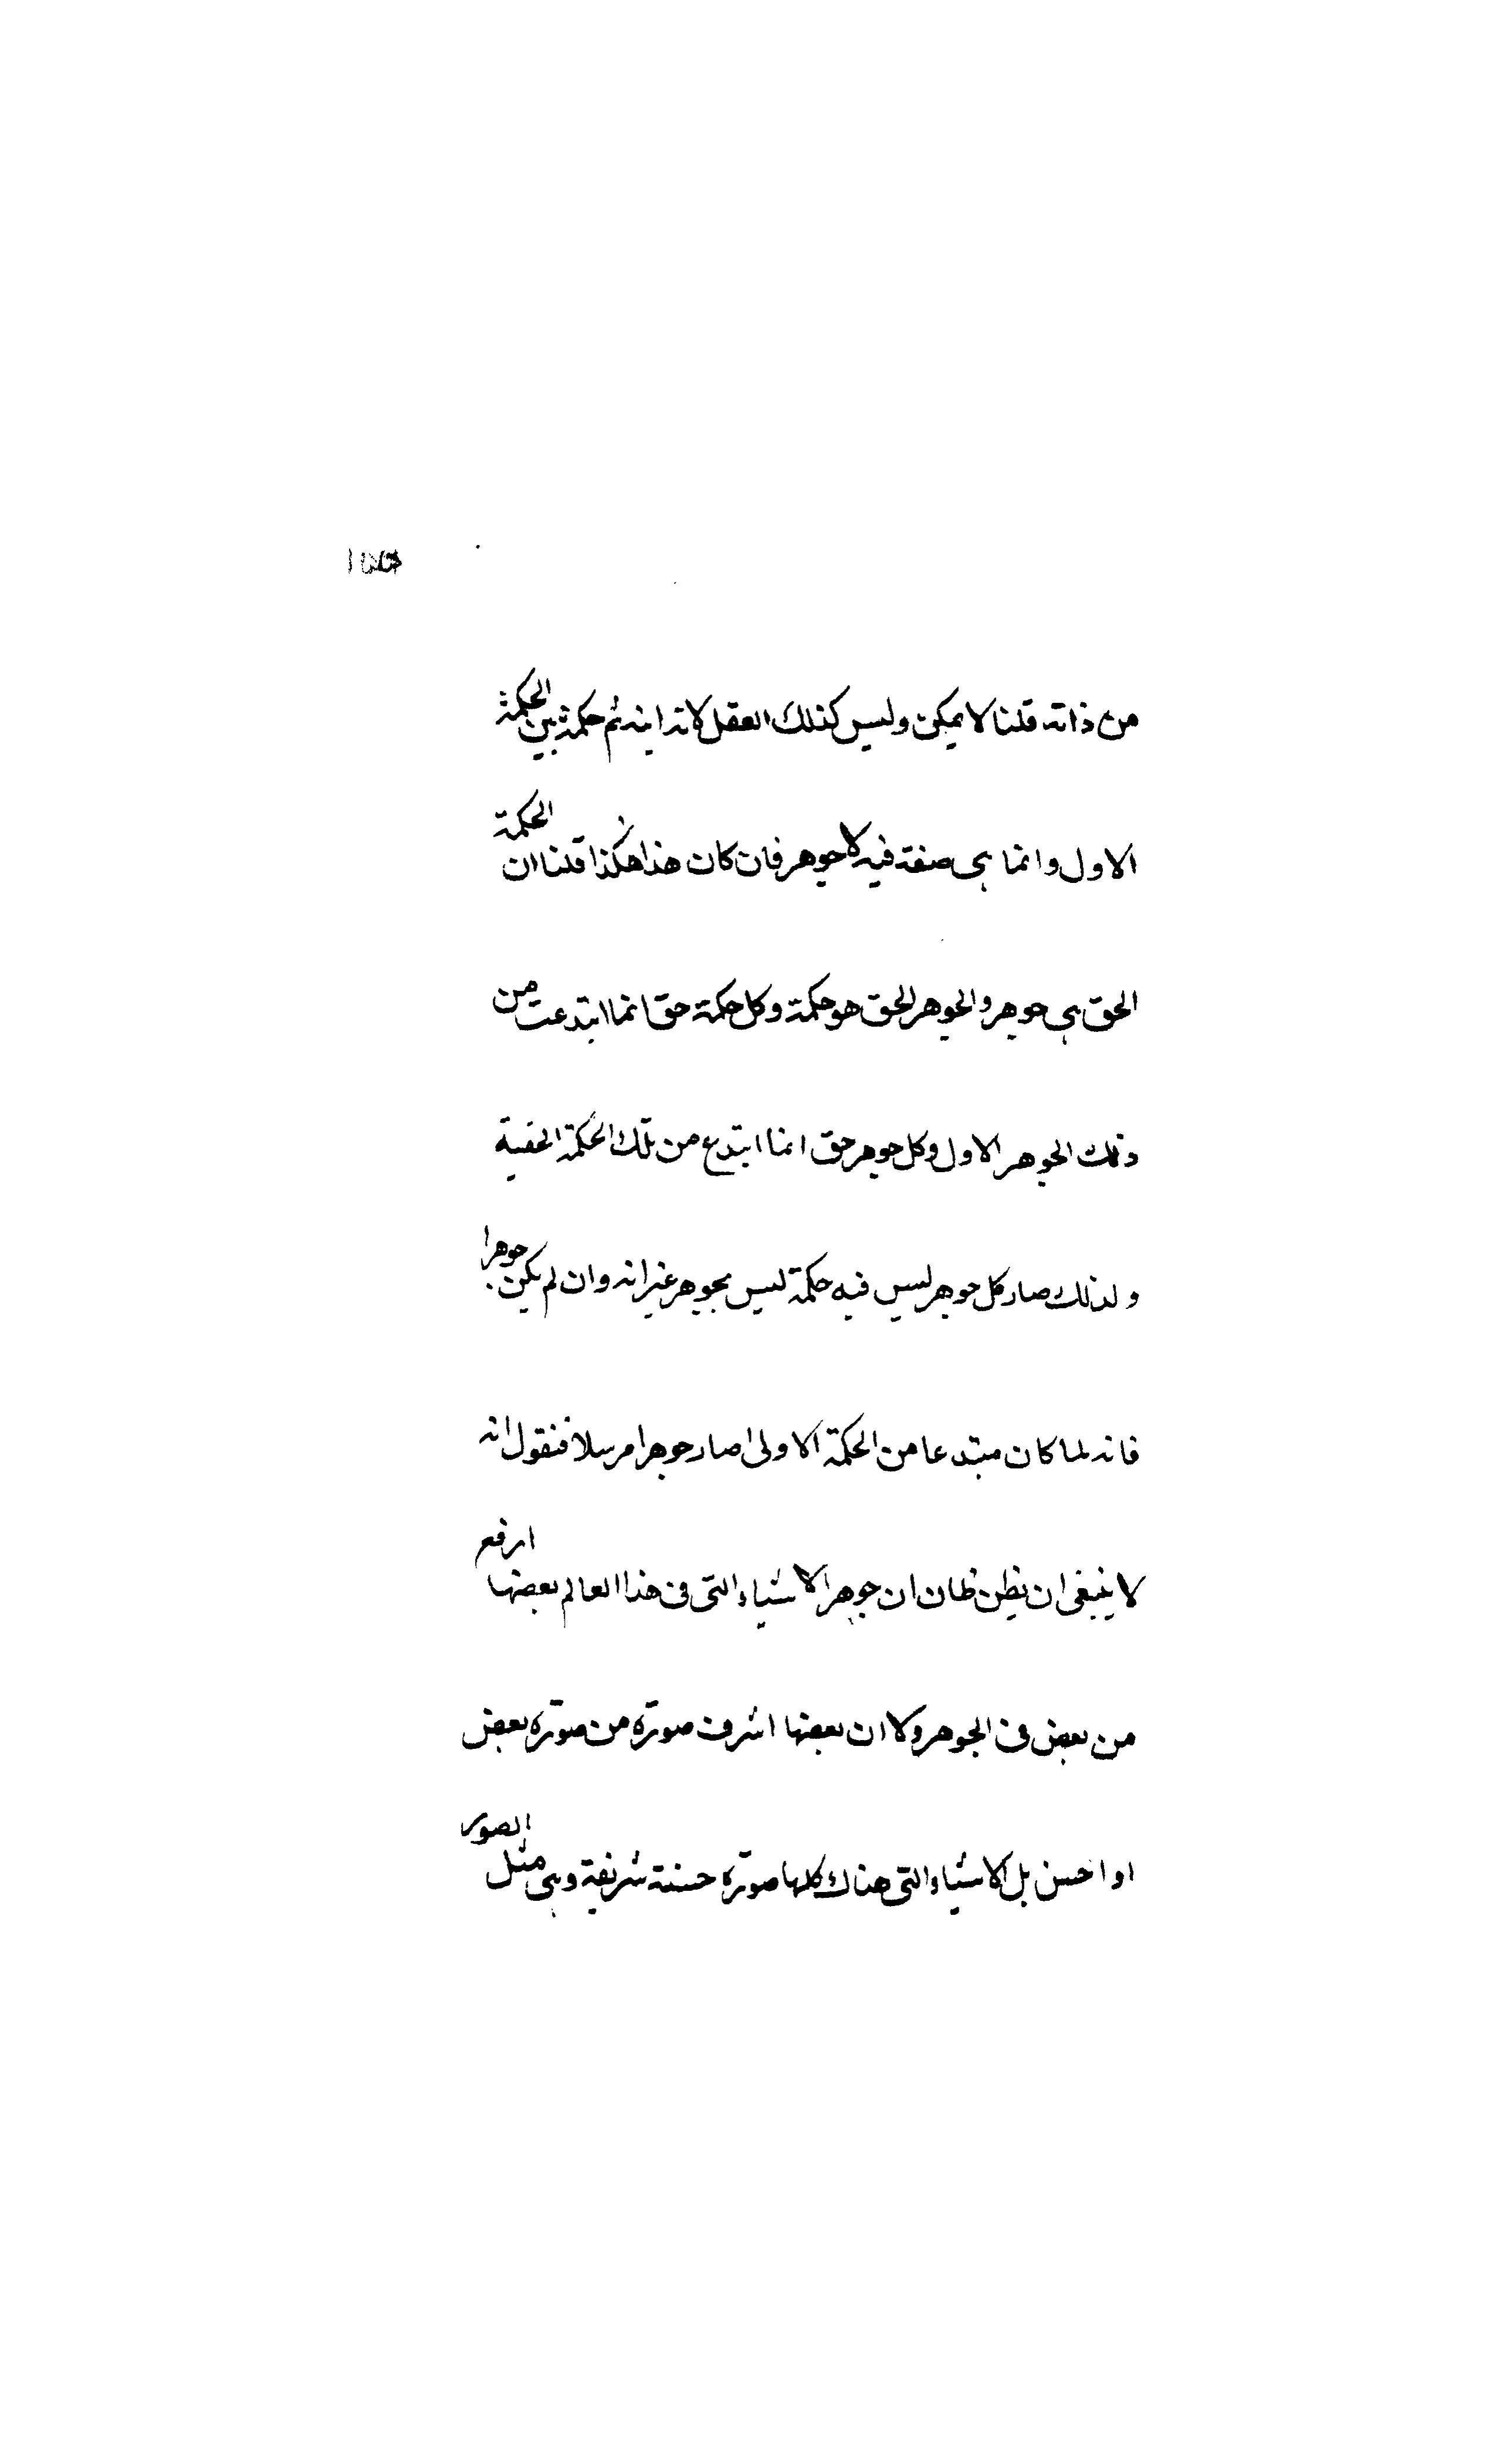 من ذاته قلنا لا يمكن وليس كذلك العقل لانه اينه ثم حكمة بين الحكمة
الاول وانما هى صفة فيه لا جوهر فان كان هذا هكذا قلنا ان الحكمة
الحق هى جوهر والجوهر الحق هو حكمة وكل حكمة حق انما ابتدعت من
ذلك الجوهر الاول وكل جوهر حق انما ابتدع من تلك الحكمة الحقية
ولذلك صار كل جوهر ليس فيه حكمة ليس بجوهر غير انه وان لم يكن جوهرا
فانه لما كان مبتدعا من الحكمة الاولى صار جوهرا مرسلا فنقول انه
لا ينبغى ان يظن ظان ان جوهر الاشياء التى فى هذا العالم بعضها ارفع
من بعض فى الجوهر ولا ان بعضها اشرف صورة من صورة بعض
او احسن بل الاشياء التى هناك كلها صورة حسنة شريفة وهى مثل الصور